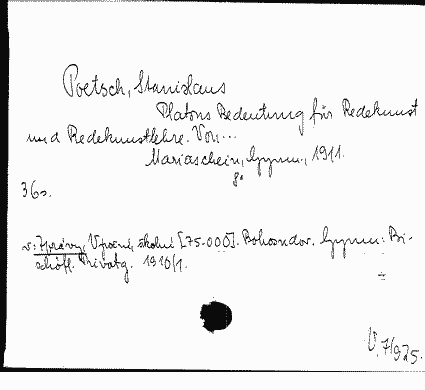 Poetsch, Stanislaus
Platons Bedeutung für Redekunst
und Redekunstlehre. Von...
Mariaschein, Gymn., 1911.
8°
36s.
v: Zprávy, Výroční, školní [75.000]. Bohosudov. Gymn. Bi-
schöfl. Privatg. 1910/1.
V.7/925.